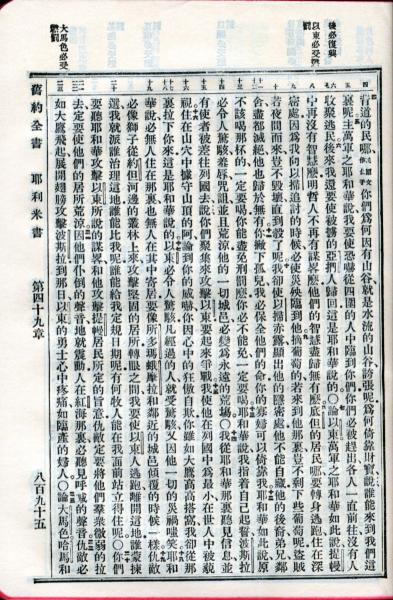 後必復興
以東必受懲罰
大馬色必受懲罰
四
背道的民哪你們爲何因有山谷就是水流的山谷誇張呢爲何倚靠財寶說誰能來到我們這
裏呢主萬軍之耶和華說我要使恐嚇從四圍的人中臨到你們你們必被趕出各人一直前往沒有人
收聚逃民後來我還要使被擄的亞捫人歸回這是耶和華說的○論以東萬軍之耶和華如此說提幔
中再沒有智慧麼明哲人不再有謀畧麼他們的智慧盡歸無有麼底但的居民哪要轉身逃跑住在深
密處因爲我向以掃追討的時候必使災殃臨到他摘葡萄的若來到他那裏豈不剩下些葡萄呢盜賊
若夜間而來豈不毀壞直到彀了呢我卻使以掃赤露顯出他的隱密處他不能自藏他的後裔弟兄鄰
舍盡都滅絕他也歸於無有你撇下孤兒我必保全他們的命你的寡婦可以倚靠我耶和華如此說原
不該喝那杯的一定要喝你能盡免刑罰麼你必不能免一定要喝耶和華說我指着自己起誓波斯拉
必令人驚駭羞辱咒詛並且荒涼他的一切城邑必變爲永遠的荒場○我從耶和華那裏聽見信息並
有使者被差往列國去說你們聚集來攻擊以東要起來爭戰我使他在列國中爲最小在世人中被藐
視住在山穴中據守山頂的阿論到你的威嚇你因心中的狂傲自欺你雖如大鷹高高搭窩我卻從那
裏拉下你來這是耶和華說的以東必令人驚駭凡經過的人就受驚駭又因他一切的災禍嗤笑耶和
華說必無人住在那裏也無人在其中寄居要像所多瑪蛾摩拉和鄰近的城邑傾覆的時候一樣仇敵
必像獅子從約但河邊的叢林上來攻擊堅固的居所轉眼之間我要使以東人逃跑離開這地誰蒙揀
選我就派誰治理這地誰能比我呢誰能給我定規日期呢有何牧人能在我面前站立得住呢○你們
要聽耶和華攻擊以東所說的謀畧和他攻擊提幔居民所定的旨意仇敵定要將他們羣衆微弱的拉
去定要使他們的居所荒涼因他們仆倒的聲音地就震動人在紅海那裏必聽見呼喊的聲音仇敵必
如大鷹飛起展開翅膀攻擊波斯拉到那日以東的勇士心中疼痛如臨產的婦人○論大馬色哈馬和
舊約全書 耶利米書 第四十九章 八百九十五